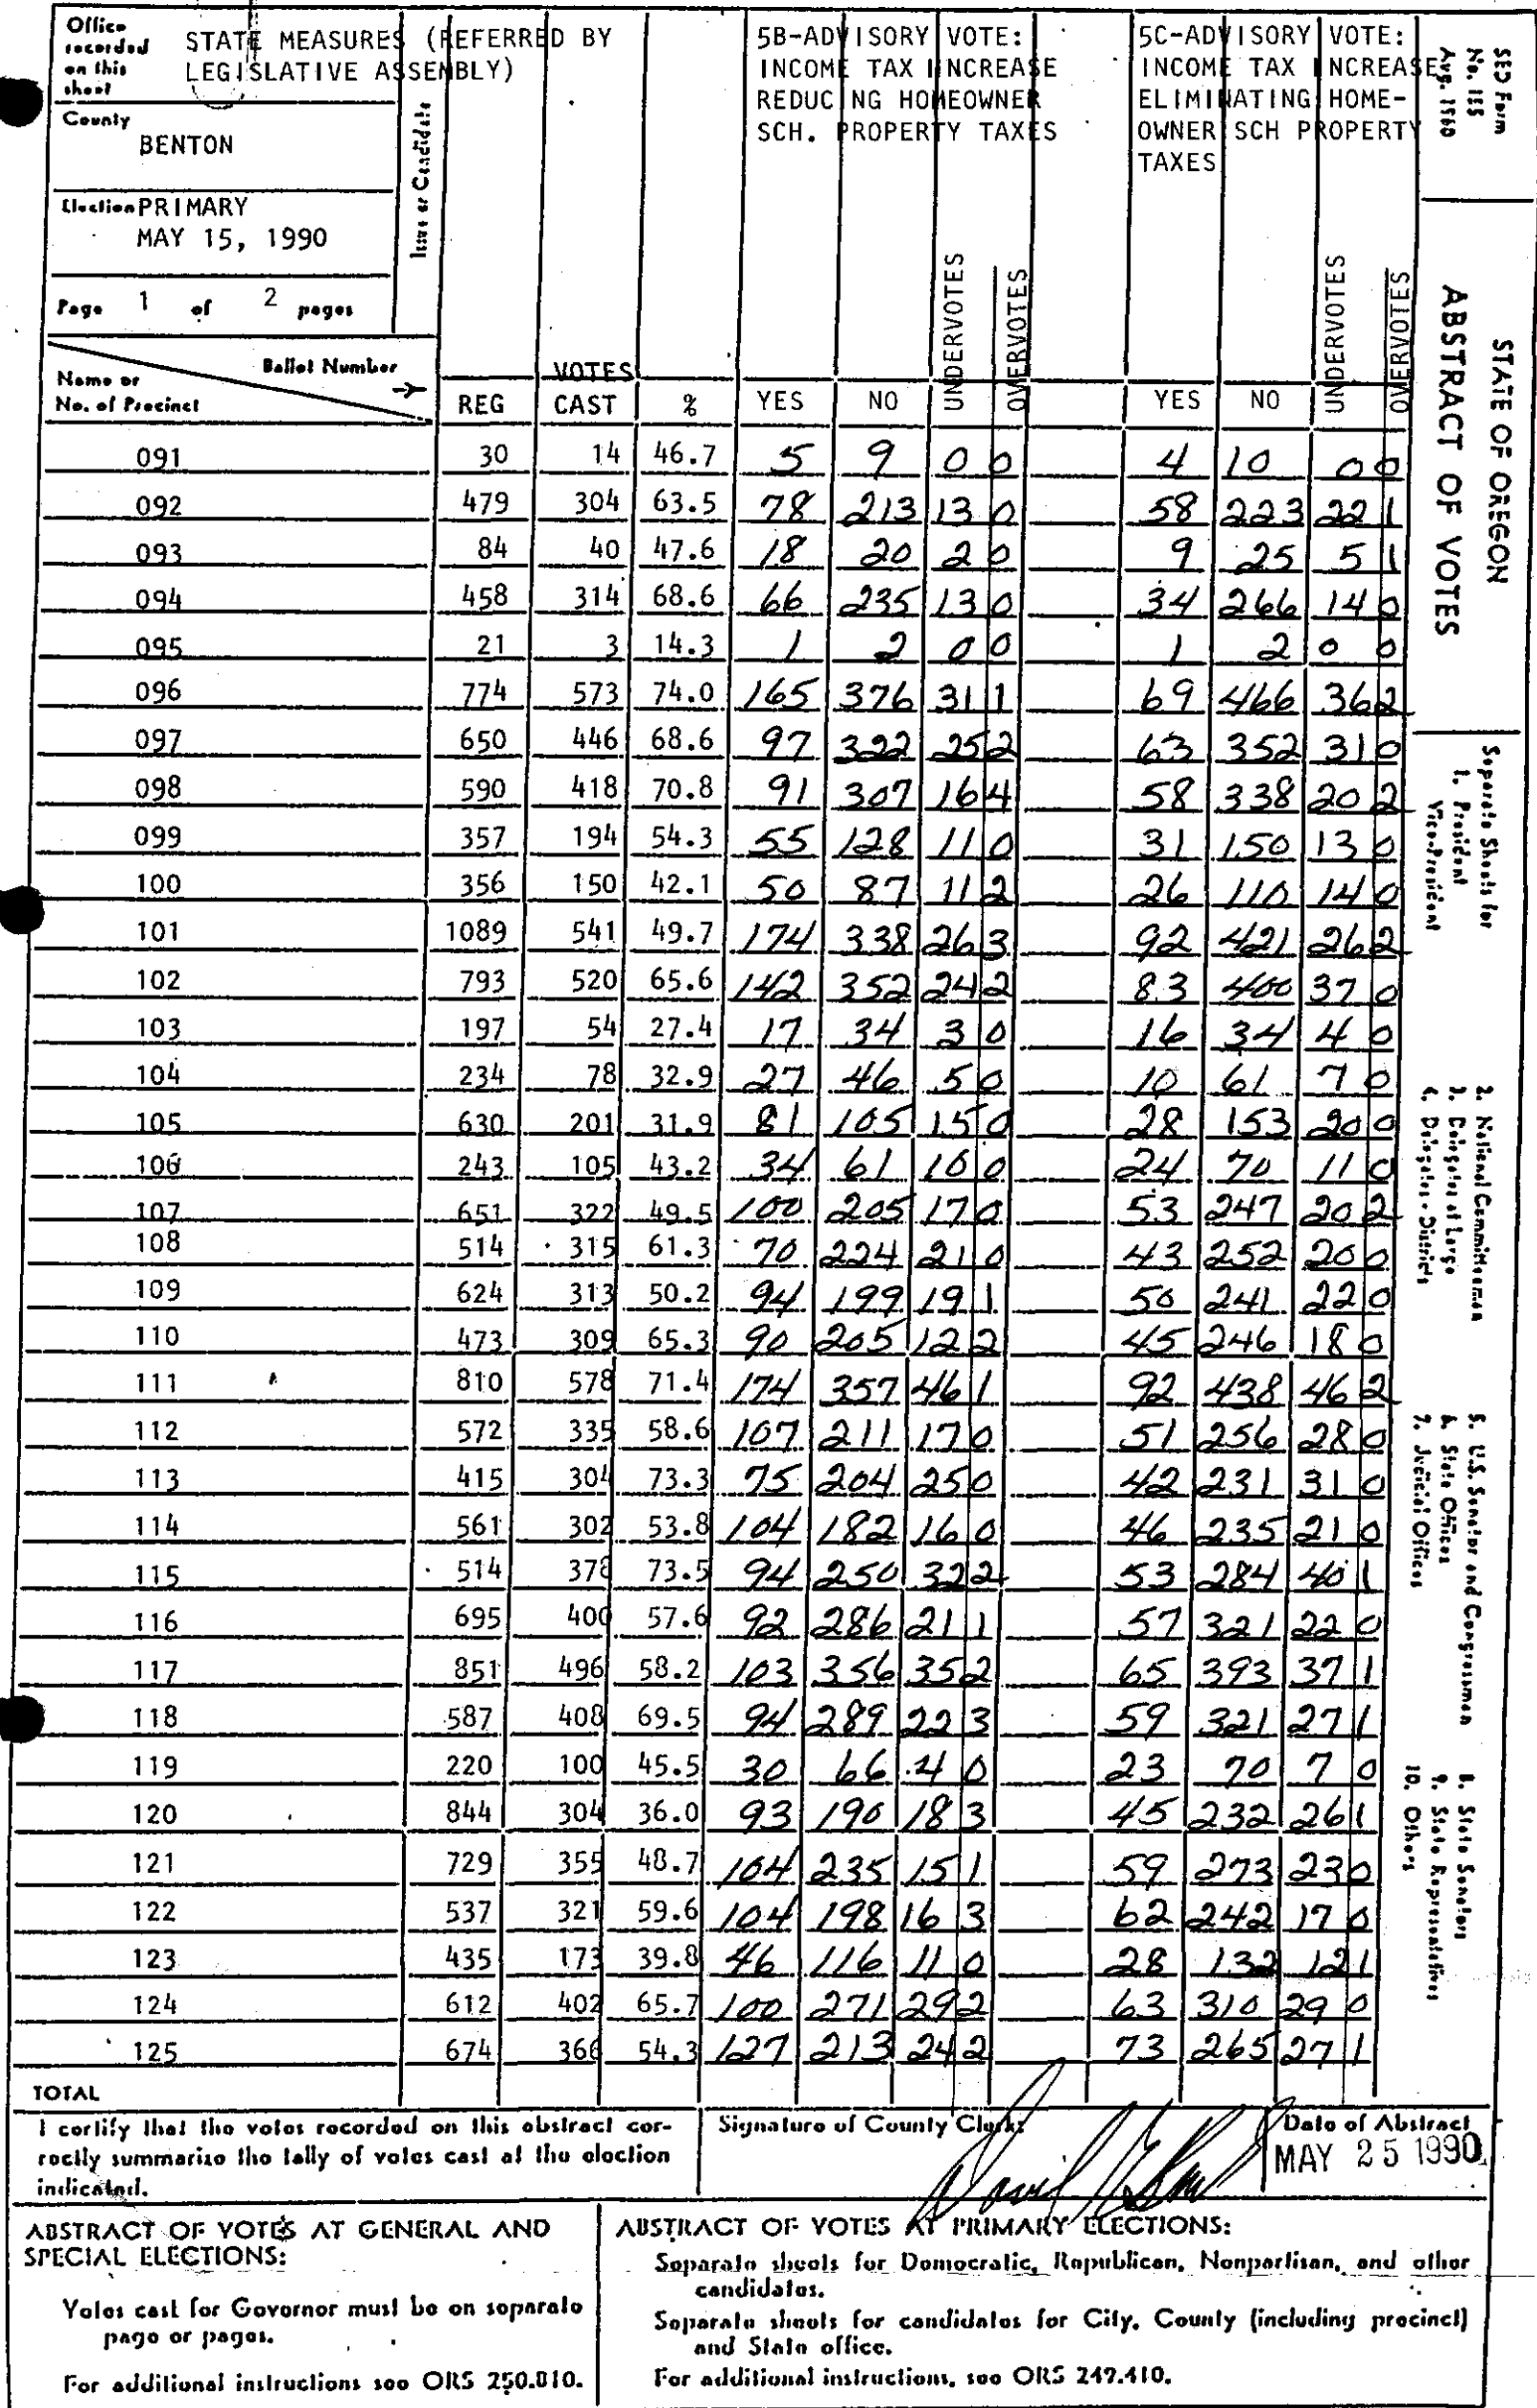 Office recorded on this sheet
STATE MEASURES (REFERRED BY LEGISLATIVE ASSEMBLY)
County
BENTON
Election PRIMARY
MAY 15, 1990
Page 1 of 2 pages
Issue or Candidate
5B-ADVISORY VOTE:
INCOME TAX INCREASE
REDUCING HOMEOWNER
SCH. PROPERTY TAXES
5C-ADVISORY VOTE:
INCOME TAX INCREASE
ELIMINATING HOME-
OWNER SCH PROPERTY
TAXES
Name or No. of Precinct
Ballot Number
REG VOTES CAST % YES NO UNDERVOTES OVERVOTES YES NO UNDERVOTES OVERVOTES
091 30 14 46.7 5 9 0 0 4 10 0 0
092 479 304 63.5 78 213 13 0 58 223 22 1
093 84 40 47.6 18 20 2 0 9 25 5 1
094 458 314 68.6 66 235 13 0 34 266 14 0
095 21 3 14.3 1 2 0 0 1 2 0 0
096 774 573 74.0 165 376 31 1 69 466 36 2
097 650 446 68.6 97 322 25 2 63 352 31 0
098 590 418 70.8 91 307 16 4 58 338 20 2
099 357 194 54.3 55 128 11 0 31 150 13 0
100 356 150 42.1 50 87 11 2 26 110 14 0
101 1089 541 49.7 174 338 26 3 92 421 26 2
102 793 520 65.6 142 352 24 2 83 400 37 0
103 197 54 27.4 17 34 3 0 16 34 4 0
104 234 78 32.9 27 46 5 0 10 61 7 0
105 630 201 31.9 81 105 15 0 28 153 20 0
106 243 105 43.2 34 61 10 0 24 70 11 0
107 651 322 49.5 100 205 17 0 53 247 20 2
108 514 315 61.3 70 224 21 0 43 252 20 0
109 624 313 50.2 94 199 19 1 50 241 22 0
110 473 309 65.3 90 205 12 2 45 246 18 0
111 810 578 71.4 174 357 46 1 92 438 46 2
112 572 335 58.6 107 211 17 0 51 256 28 0
113 415 304 73.3 75 204 25 0 42 231 31 0
114 561 302 53.8 104 182 16 0 46 235 21 0
115 514 378 73.5 94 250 32 2 53 284 40 1
116 695 400 57.6 92 286 21 1 57 321 22 0
117 851 496 58.2 103 356 35 2 65 393 37 1
118 587 408 69.5 94 289 22 3 59 321 27 1
119 220 100 45.5 30 66 4 0 23 70 7 0
120 844 304 36.0 93 190 18 3 45 232 26 1
121 729 355 48.7 104 235 15 1 59 273 23 0
122 537 321 59.6 104 198 16 3 62 242 17 0
123 435 173 39.8 46 116 11 0 28 132 12 1
124 612 402 65.7 100 271 29 2 63 310 29 0
125 674 366 54.3 127 213 24 2 73 265 27 1
TOTAL
I certify that the votes recorded on this abstract cor-
rectly summarize the tally of votes cast at the election
indicated.
Signature of County Clerk:
Date of Abstract
MAY 25 1990
ABSTRACT OF VOTES AT GENERAL AND
SPECIAL ELECTIONS:
Votes cast for Governor must be on separate
page or pages.
For additional instructions see ORS 250.810.
ABSTRACT OF VOTES AT PRIMARY ELECTIONS:
Separate sheets for Democratic, Republican, Nonpartisan, and other
candidates.
Separate sheets for candidates for City, County (including precinct)
and State office.
For additional instructions, see ORS 249.410.
SED Form
No. 155
Aug. 1960
STATE OF OREGON
ABSTRACT OF VOTES
Separate Sheets for
1. President
Vice-President
2. National Committeeman
3. Delegates at Large
4. Delegates - Districts
5. U.S. Senator and Congressman
6. State Offices
7. Judicial Offices
8. State Senators
9. State Representatives
10. Others